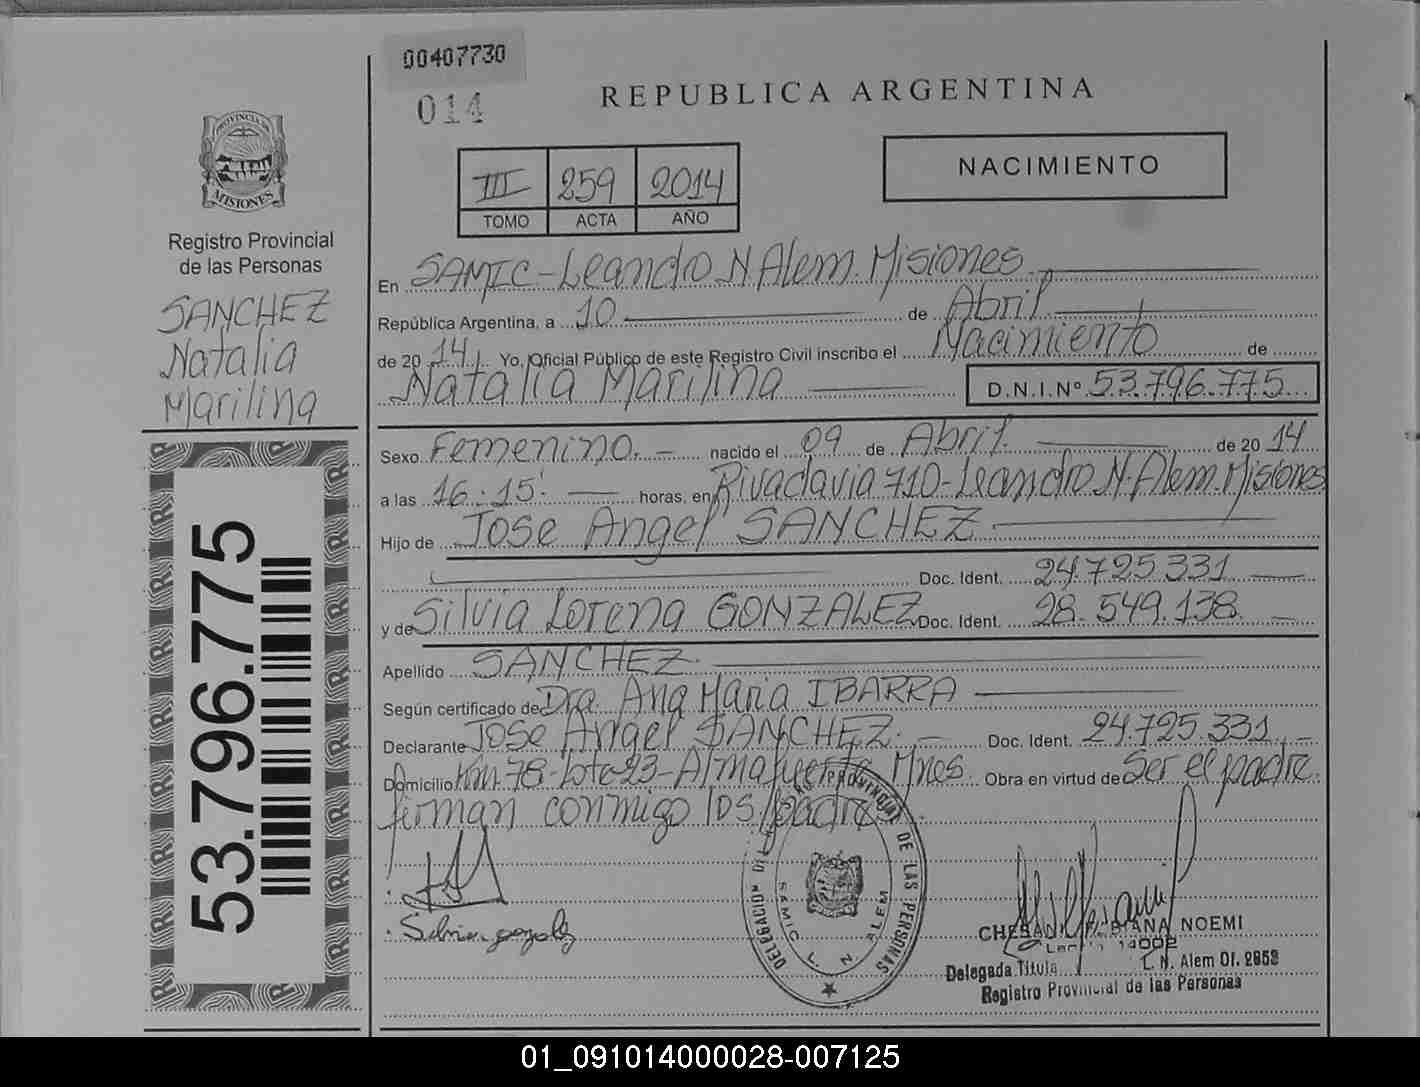 00407730
014
REPUBLICA ARGENTINA
NACIMIENTO
III 259 2014
TOMO ACTA AÑO
PROVINCIA DE
MISIONES
Registro Provincial
de las Personas
SANCHEZ
Natalia
Marilina
53.796.775
En SAMIC - Leandro N Alem. Misiones
República Argentina, a 10 de Abril
de 2014. Yo, Oficial Público de este Registro Civil inscribo el Nacimiento de
Natalia Marilina D.N.I.Nº 53.796.775
Sexo Femenino. nacido el 09 de Abril. de 2014
a las 16:15' horas, en Rivadavia 710 - Leandro N. Alem. Misiones
Hijo de Jose Angel SANCHEZ
Doc. Ident. 24.725.331
y de Silvia Lorena GONZALEZ Doc. Ident. 28.549.138.
Apellido SANCHEZ.
Según certificado de Dra. Ana Maria IBARRA
Declarante Jose Angel SANCHEZ. Doc. Ident. 24.725.331
Domicilio Km 78 - Lote 23 - Almafuerte Mnes. Obra en virtud de Ser el padre.
firman conmigo los padres.
Silvia gonzalez
DELEGACION DEL REGISTRO PROVINCIAL DE LAS PERSONAS
SAMIC L. N. ALEM
CHESANI FABIANA NOEMI
14002
Delegada Titular L. N. Alem Of. 2952
Registro Provincial de las Personas
01_091014000028-007125